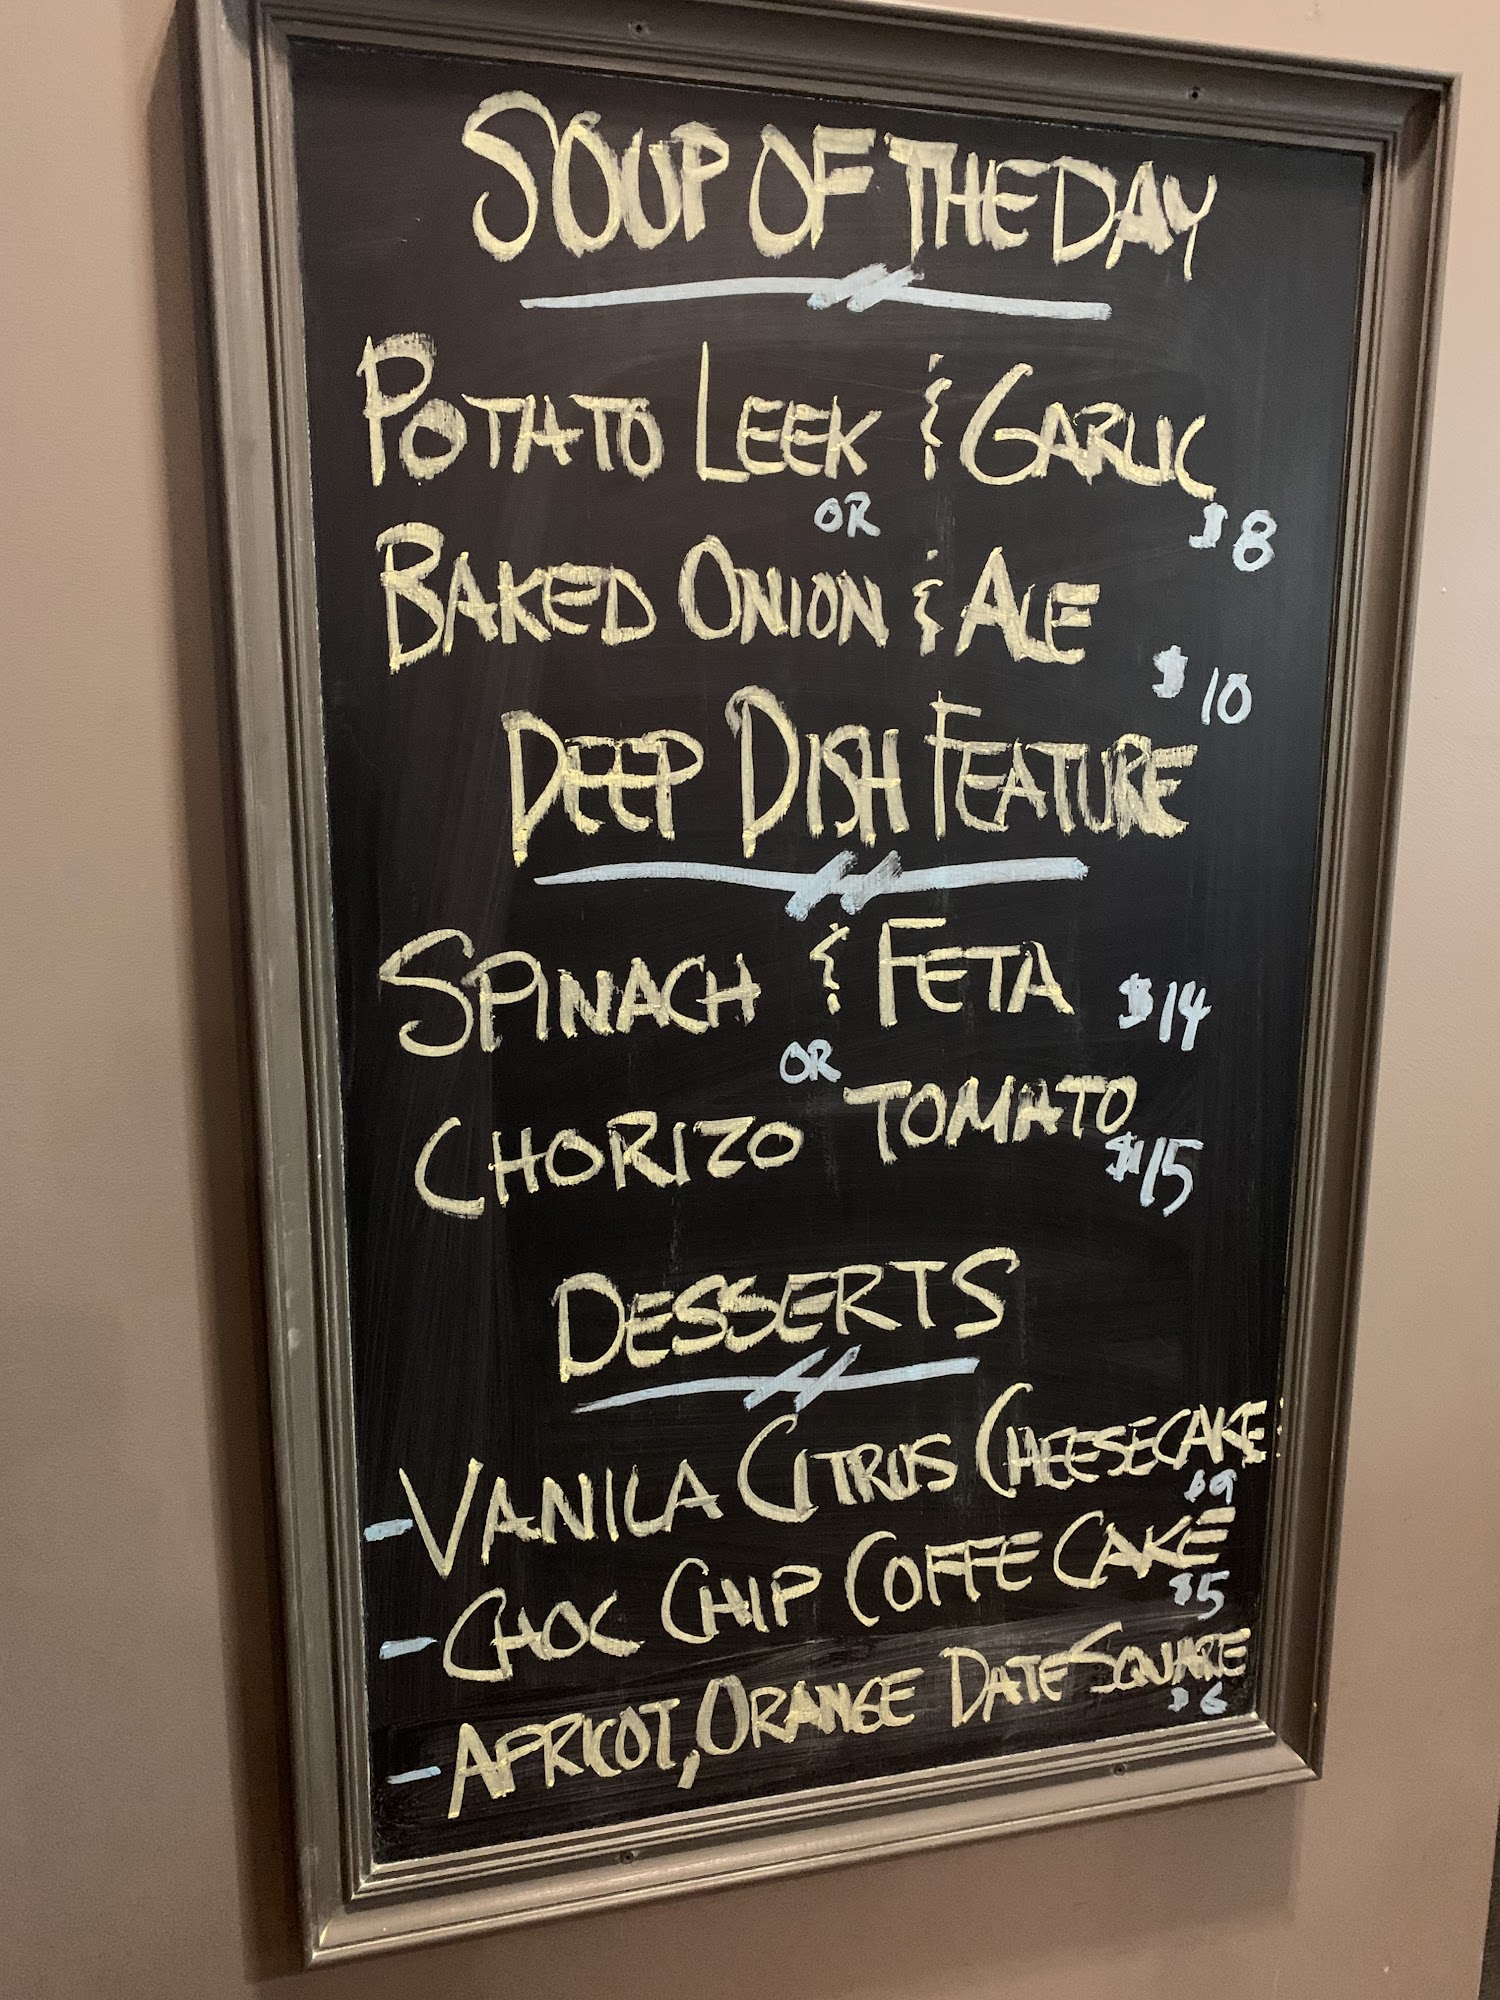 SOUP OF THE DAY
POTATO LEEK & GARLIC
$8
OR
BAKED ONION & ALE
$10
DEEP DISH FEATURE
SPINACH & FETA $14
OR
CHORIZO TOMATO
$15
DESSERTS
- VANILA CITRUS CHEESECAKE
$9
- CHOC CHIP COFFEE CAKE
$5
- APRICOT, ORANGE DATE SQUARE
$6